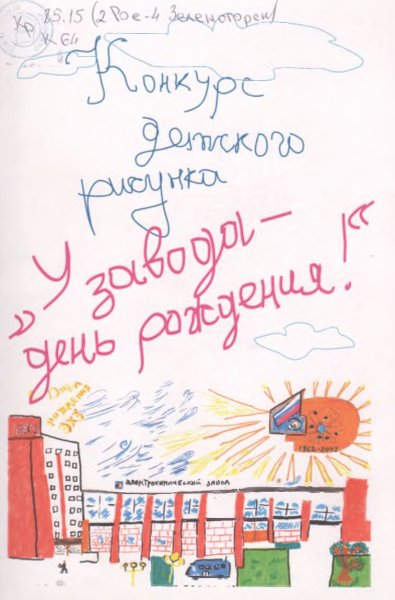 85.15 (2 Рос-4 Зеленогорск)
К 64
Конкурс
детского
рисунка
„У завода –
день рождения!“
День
рождения
ЭХЗ
ЭЛЕКТРОХИМИЧЕСКИЙ ЗАВОД